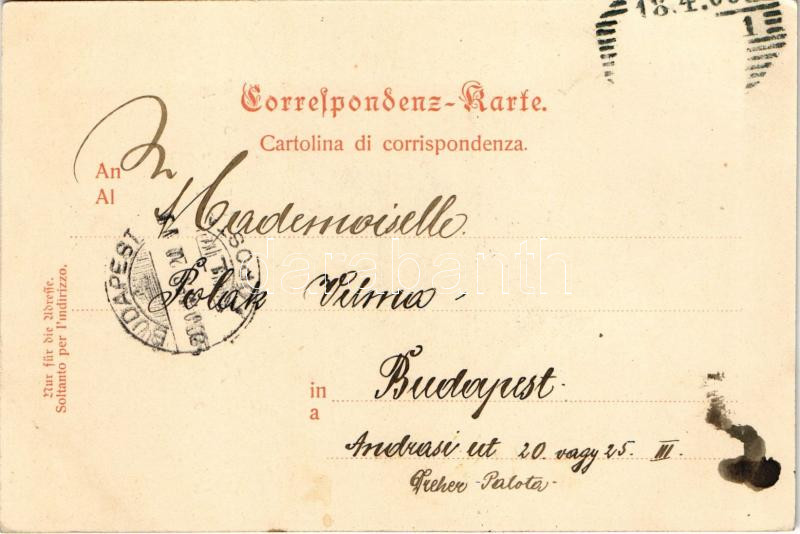 18.4.
1
Correspondenz-Karte.
Cartolina di corrispondenza.
An
Al
Mademoiselle.
Polak Vilma
in
a
Budapest.
Andrasi ut 20 vagy 25. III.
Dreher Palota
Nur für die Adresse.
Soltanto per l'indirizzo.
BUDAPEST
darabanth